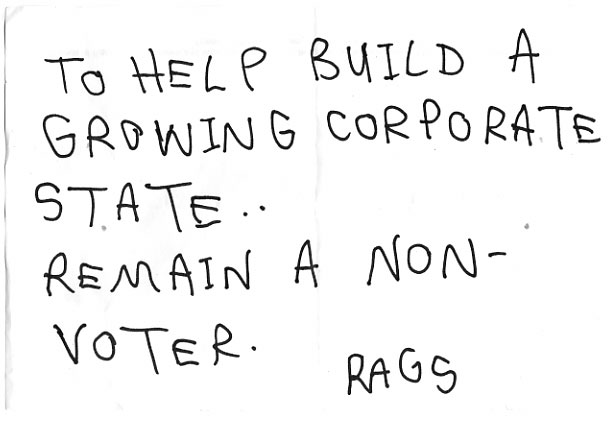 TO HELP BUILD A
GROWING CORPORATE
STATE..
REMAIN A NON-
VOTER.
RAGS